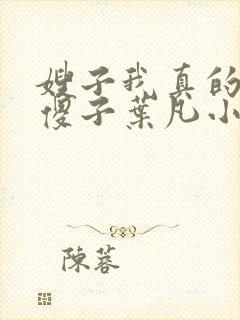 嫂子我真的
傻子葉凡小
陳蓉